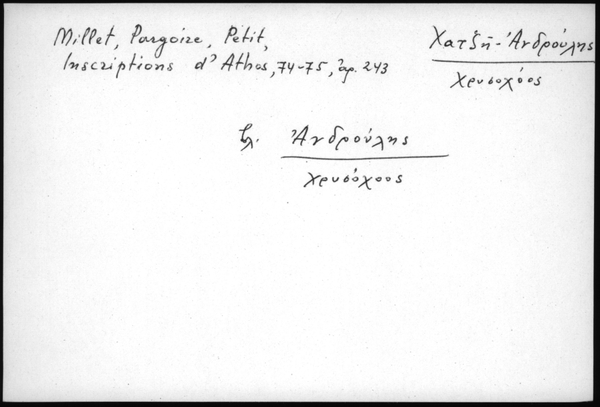 Millet, Pargoire, Petit,
Inscriptions d'Athos, 74-75, ἀρ. 243
Χατζῆ-Ἀνδρούλης
χρυσοχόος
βλ. Ἀνδρούλης
χρυσόχοος